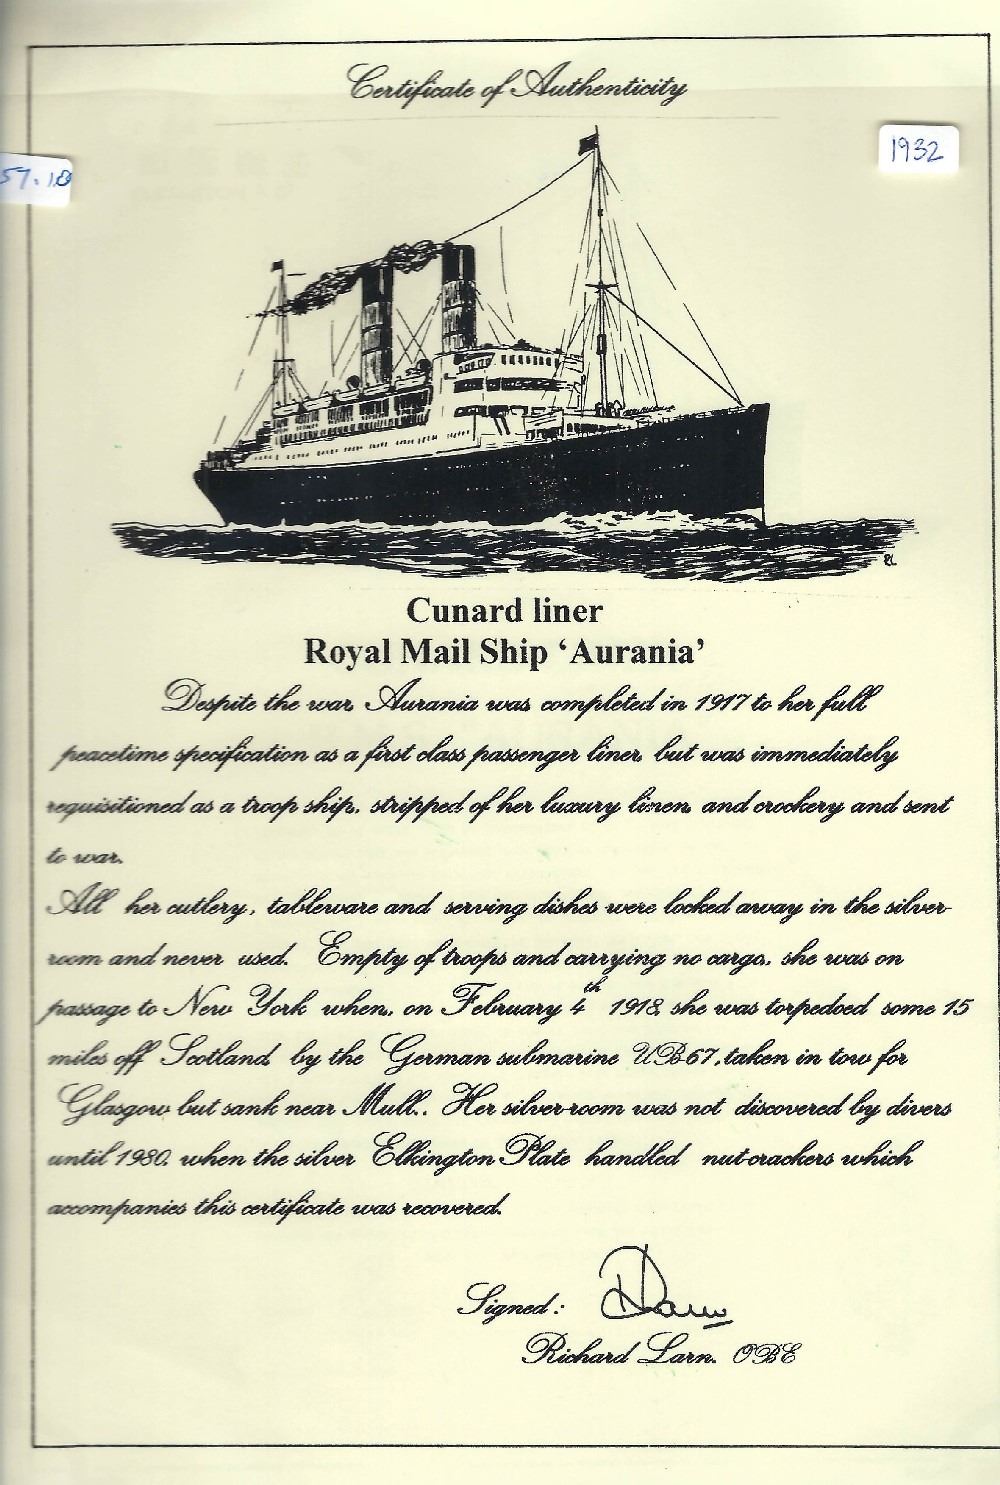 Certificate of Authenticity
1932
57.18
RL
Cunard liner
Royal Mail Ship ‘Aurania’
Despite the war, Aurania was completed in 1917 to her full
peacetime specification as a first class passenger liner, but was immediately
requisitioned as a troop ship, stripped of her luxury linen, and crockery and sent
to war.
All her cutlery, tableware and serving dishes were locked away in the silver-
room and never used. Empty of troops and carrying no cargo, she was on
passage to New York when, on February 4th 1918, she was torpedoed some 15
miles off Scotland, by the German submarine UB-67, taken in tow for
Glasgow but sank near Mull.. Her silver-room was not discovered by divers
until 1980, when the silver Elkington Plate handled nut-crackers which
accompanies this certificate was recovered.
Signed:
Richard Larn. OBE